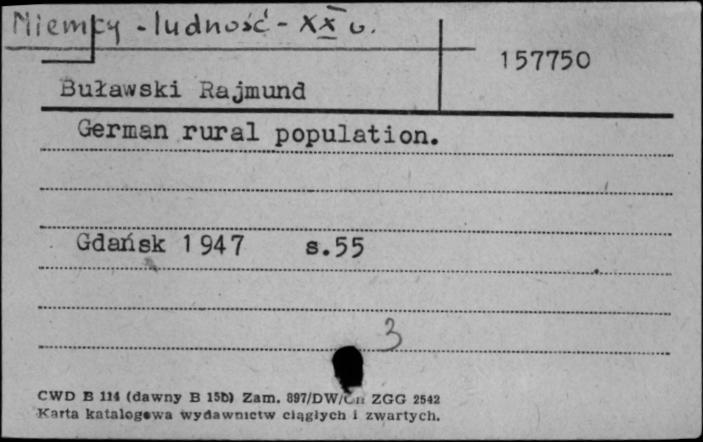 Niemcy - ludność - XX w.
157750
Buławski Rajmund
German rural population.
Gdańsk 1947 s.55
3
CWD B 114 (dawny B 15b) Zam. 897/DW/Cn ZGG 2542
Karta katalogowa wydawnictw ciągłych i zwartych.